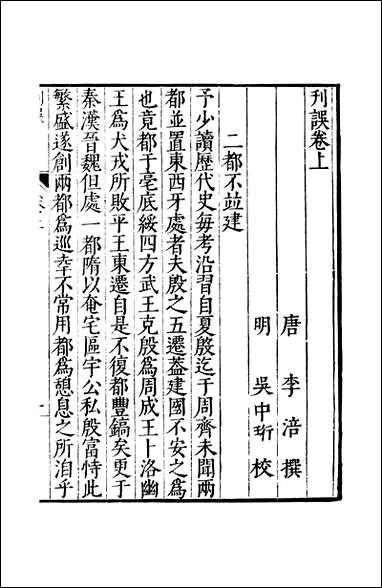 刊誤卷上
唐 李涪 撰
明 吳中珩 校
二都不並建
予少讀歷代史每考沿習自夏殷迄于周齊未聞兩
都並置東西牙處者夫殷之五遷葢建國不安之為
也竟都于亳底綏四方武王克殷為周成王卜洛幽
王為犬戎所敗平王東遷自是不復都豐鎬矣更于
秦漢晉魏但處一都隋以奄宅區宇公私殷富恃此
繁盛遂創兩都為巡幸不常用都為憩息之所洎乎